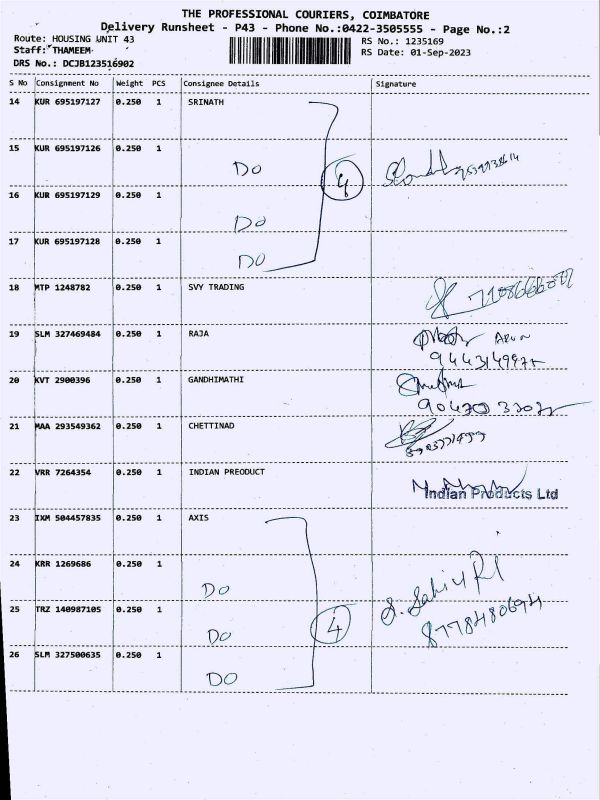 THE PROFESSIONAL COURIERS, COIMBATORE
Delivery Runsheet - P43 - Phone No.:0422-3505555 - Page No.:2
Route: HOUSING UNIT 43 RS No.: 1235169
Staff: THAMEEM RS Date: 01-Sep-2023
DRS No.: DCJB123516902
S No Consignment No Weight PCS Consignee Details Signature
14 KUR 695197127 0.250 1 SRINATH
15 KUR 695197126 0.250 1
DO 4
16 KUR 695197129 0.250 1
DO
17 KUR 695197128 0.250 1
DO
18 MTP 1248782 0.250 1 SVY TRADING
19 SLM 327469484 0.250 1 RAJA
20 KVT 2900396 0.250 1 GANDHIMATHI
21 MAA 293549362 0.250 1 CHETTINAD
22 VRR 7264354 0.250 1 INDIAN PREODUCT
Indian Products Ltd
23 IXM 504457835 0.250 1 AXIS
24 KRR 1269686 0.250 1
DO
25 TRZ 140987105 0.250 1
DO 4
26 SLM 327500635 0.250 1
DO